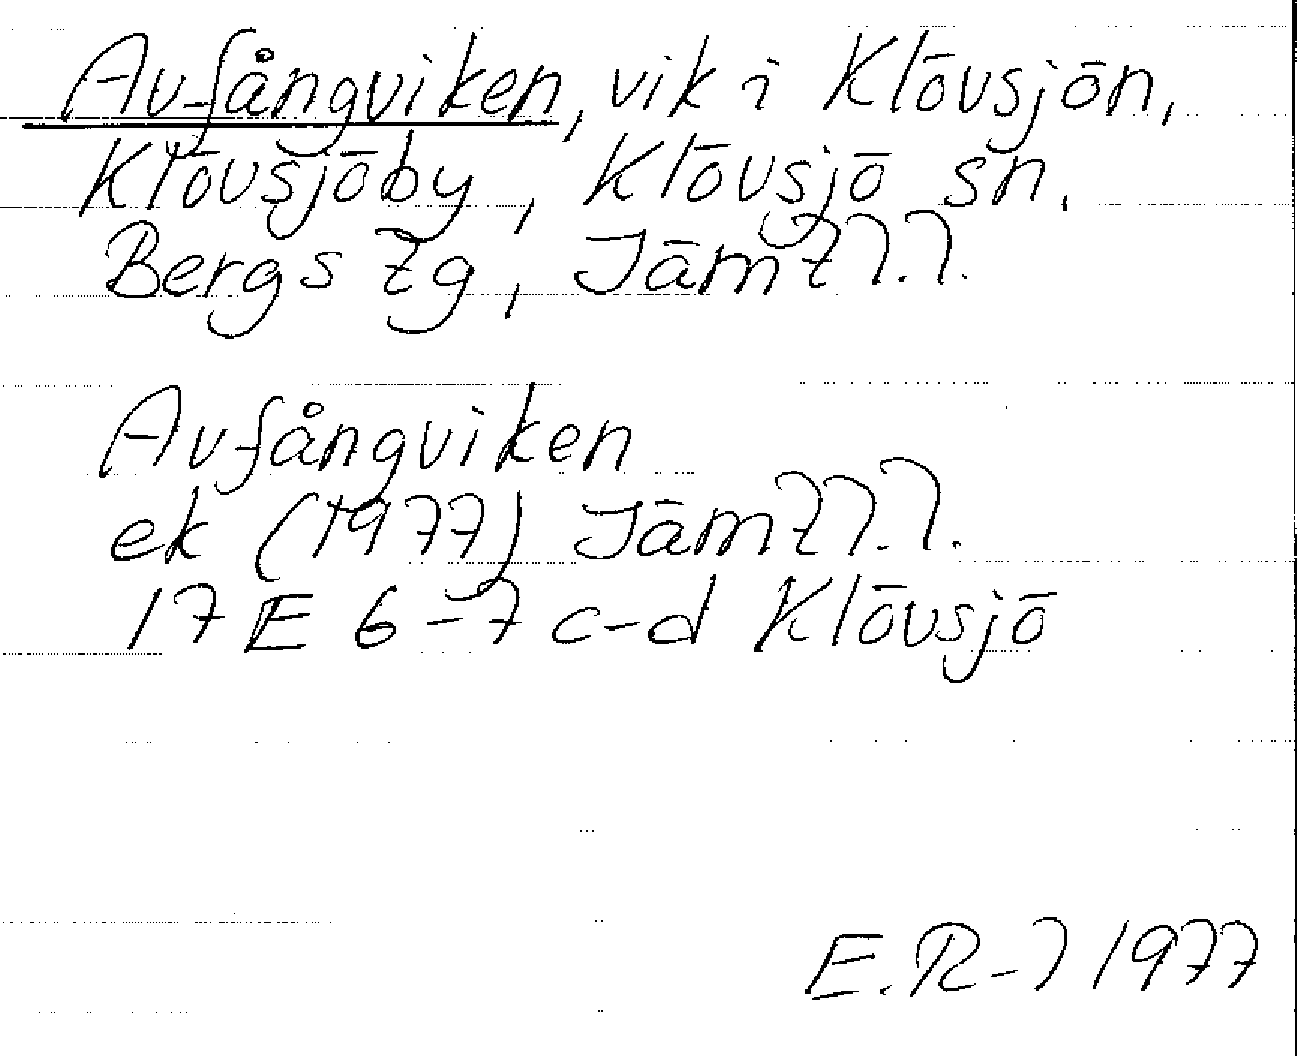 Avfångviken, vik i Klövsjön,
Klövsjöby, Klövsjö sn.
Bergs tg, Jämtl.
Avfångviken
ek (1977) Jämtl.
17 E 6-7 c-d Klövsjö
E. R-1 1977